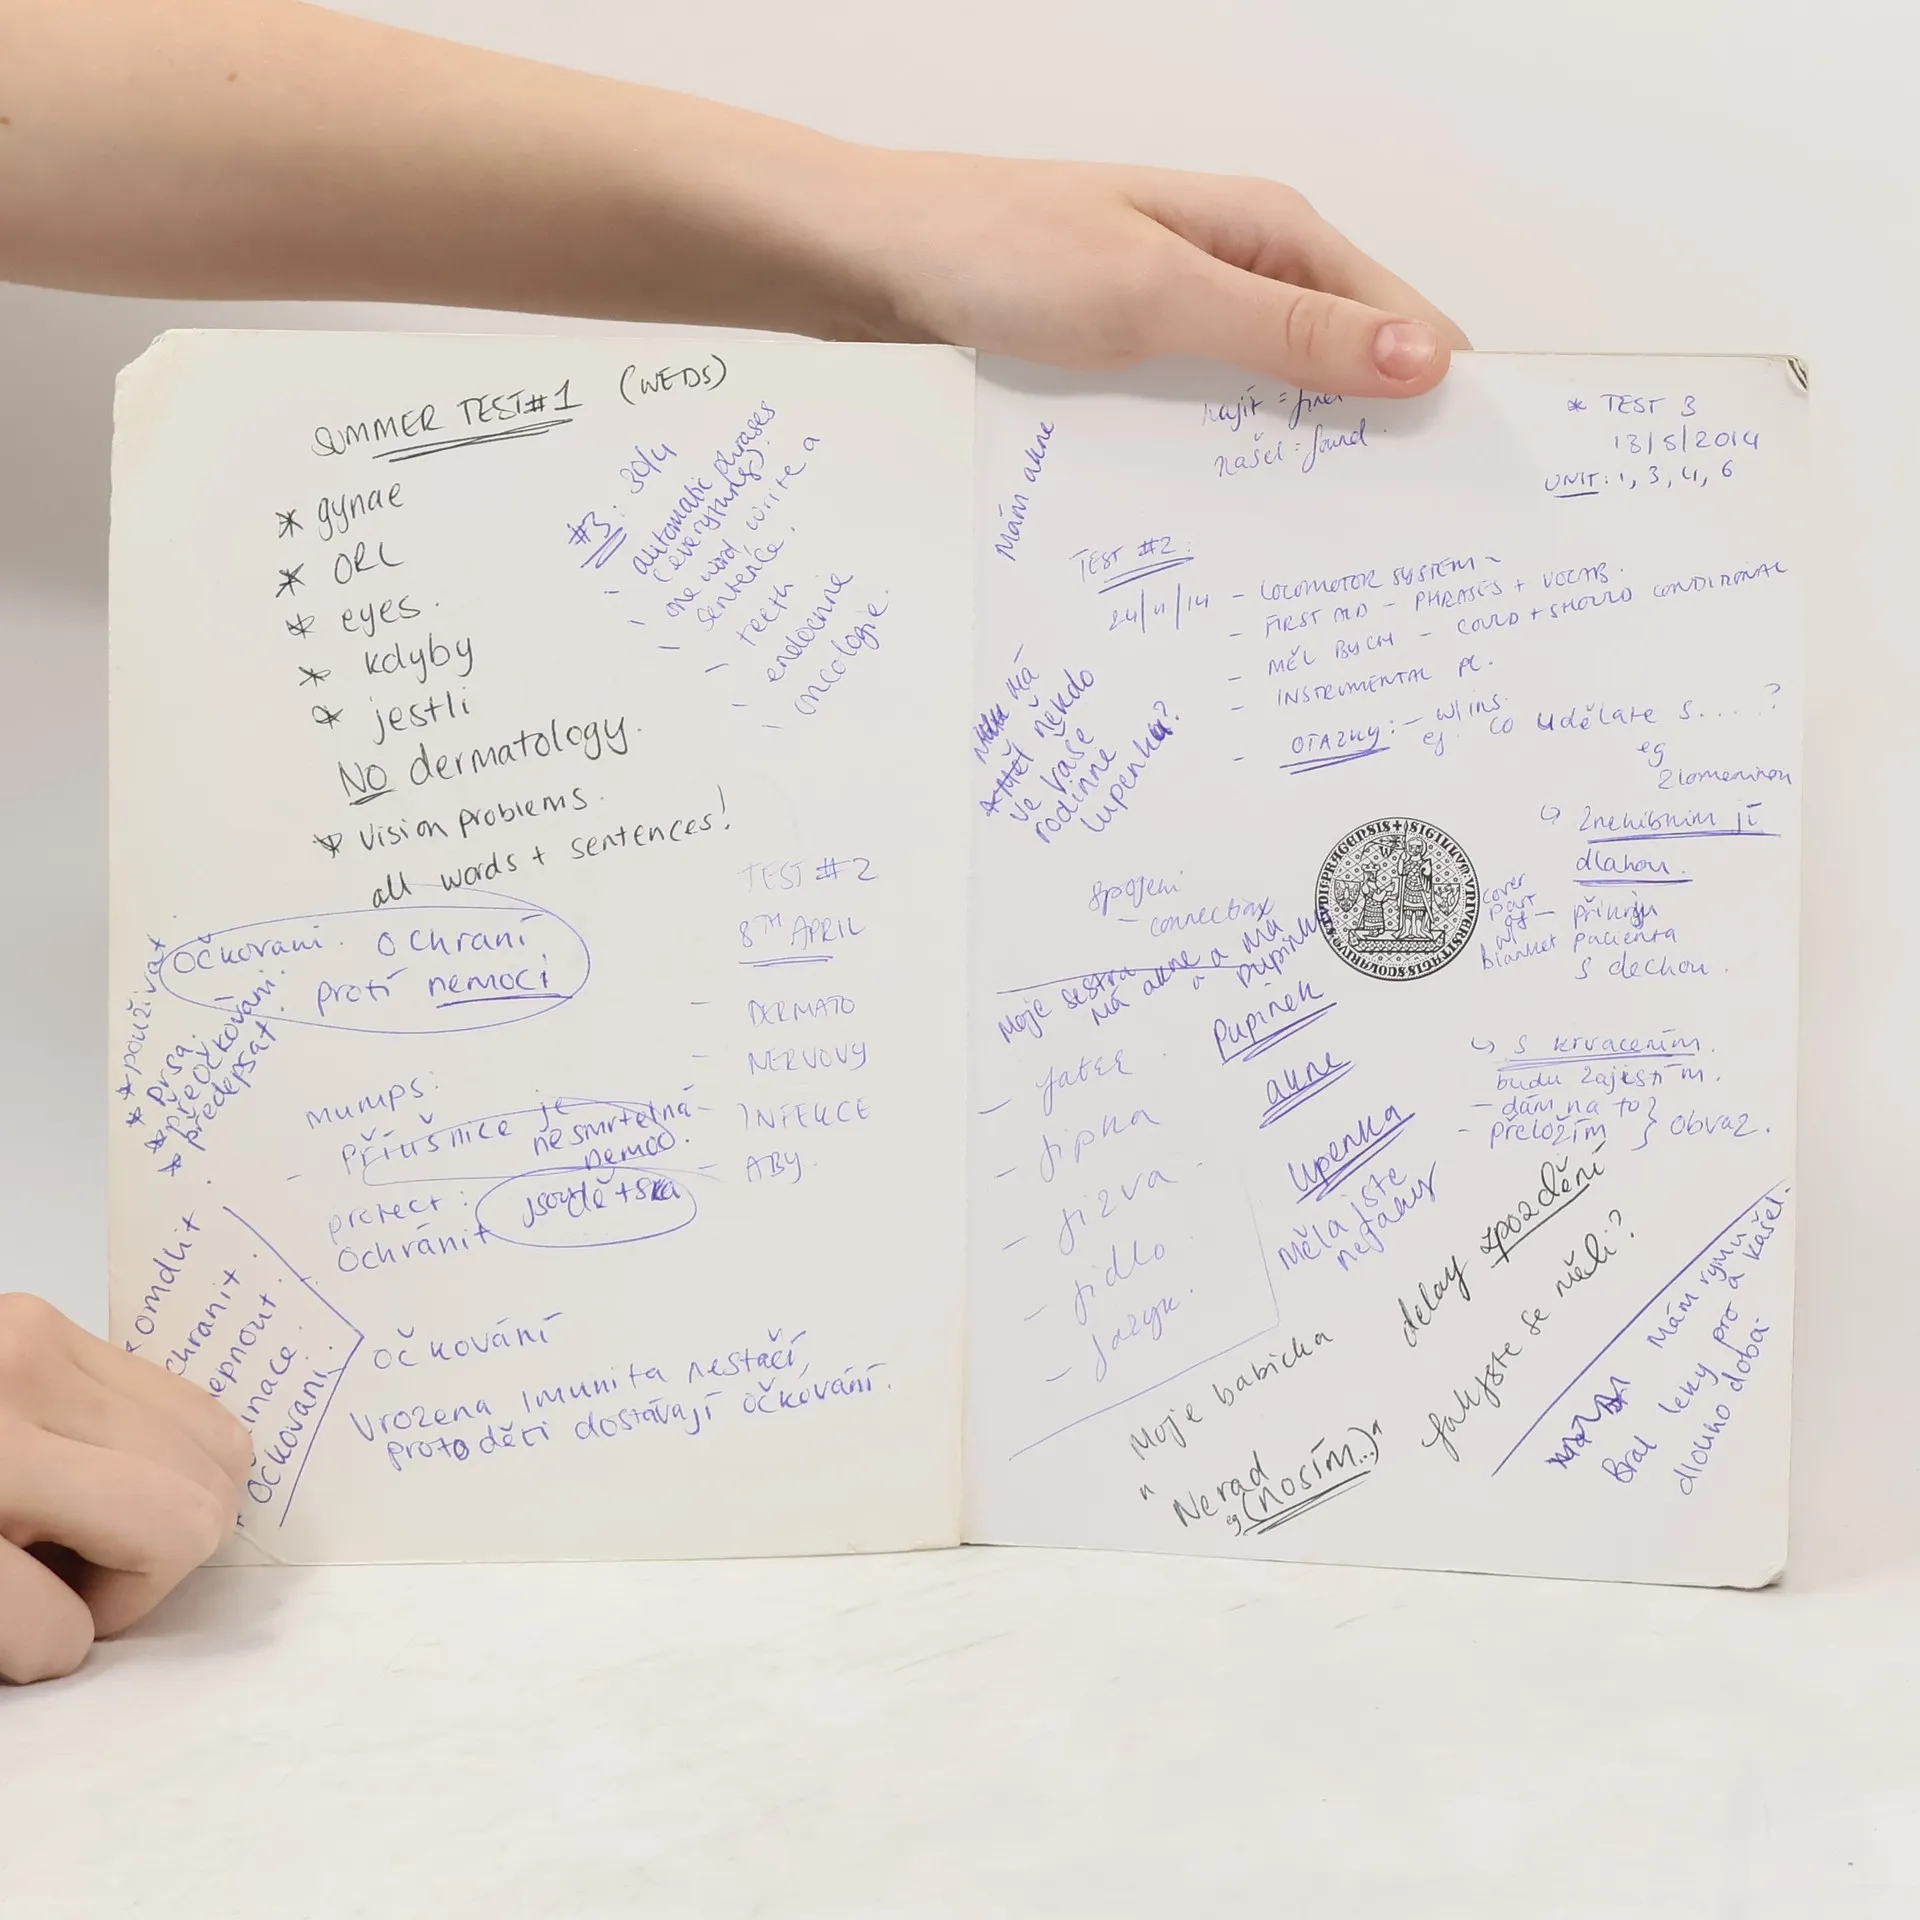 SUMMER TEST#1 (WEDS)
* gynae
* ORL
* eyes.
* kdyby
* jestli
NO dermatology.
* vision problems.
all words + sentences!
#3: 30/4
- automatic phrases
(everything).
- one word write a
sentence.
- teeth
- endocrine
- oncologie.
Očkovaní. Ochraní
proti nemoci
* používat
* prsa.
* přeočkování.
* předepsat.
mumps:
- příušnice je
nesmrtelná
nemoc.
protect:
Ochránit
TEST #2
8TH APRIL
- DERMATO
- NERVOVY
- INFEKCE
- ABY.
omdlít
chranit
Očkovaní.
očkování
Vrozena imunita nestačí,
proto děti dostávají očkování.
najít = find
našel = found.
* TEST 3
13/5/2014
UNIT: 1, 3, 4, 6
Mám akne
TEST #2:
24/11/14 - LOCOMOTOR SYSTEM -
- FIRST AID - PHRASES + VOCAB.
- MĚL BYCH - COULD + SHOULD CONDITIONAL
- INSTRUMENTAL PL.
- OTAZKY: - w/ ins.
eg. co udělate s....?
eg
zlomeninou
má
někdo
ve vaše
rodinné
lupenka?
znehibním jí
dlahou.
cover
part
w/
blanket
- přikryju
pacienta
s dechou.
spojení
- connection
Moje sestra
má akne a má
pupínku
Pupínek
akne
lupenka
- játer
- jipka
- jizva
- jídlo
- jazyk.
Měla jste
nějaky
↳ s krvacením.
budu zajistím.
- dám na to
- přeložím } obvaz.
delay zpozdění
Jakyste se měli?
Moje babicka
" Nerad
eg (nosím..)"
Mám rymu
a kašel.
Bral leky pro
dlouho doba.
SIGILLVM